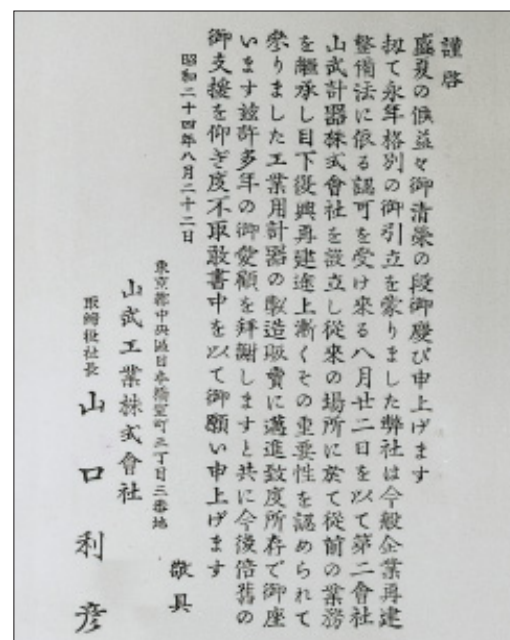 謹啓
盛夏の候益々御清榮の段御慶び申上げます
扨て永年格別の御引立を蒙りました弊社は今般企業再建
整備法に依る認可を受け来る八月廿二日を以て第二會社
山武計器株式會社を設立し従来の場所に於て従前の業務
を継承し目下復興再建途上漸くその重要性を認められて
参りました工業用計器の製造販賣に邁進致度所存で御座
います玆許多年の御愛顧を拝謝しますと共に今後倍舊の
御支援を仰ぎ度不取敢書中を以て御願い申上げます
敬具
昭和二十四年八月二十二日
東京都中央區日本橋室町三丁目三番地
山武工業株式會社
取締役社長 山口利彦